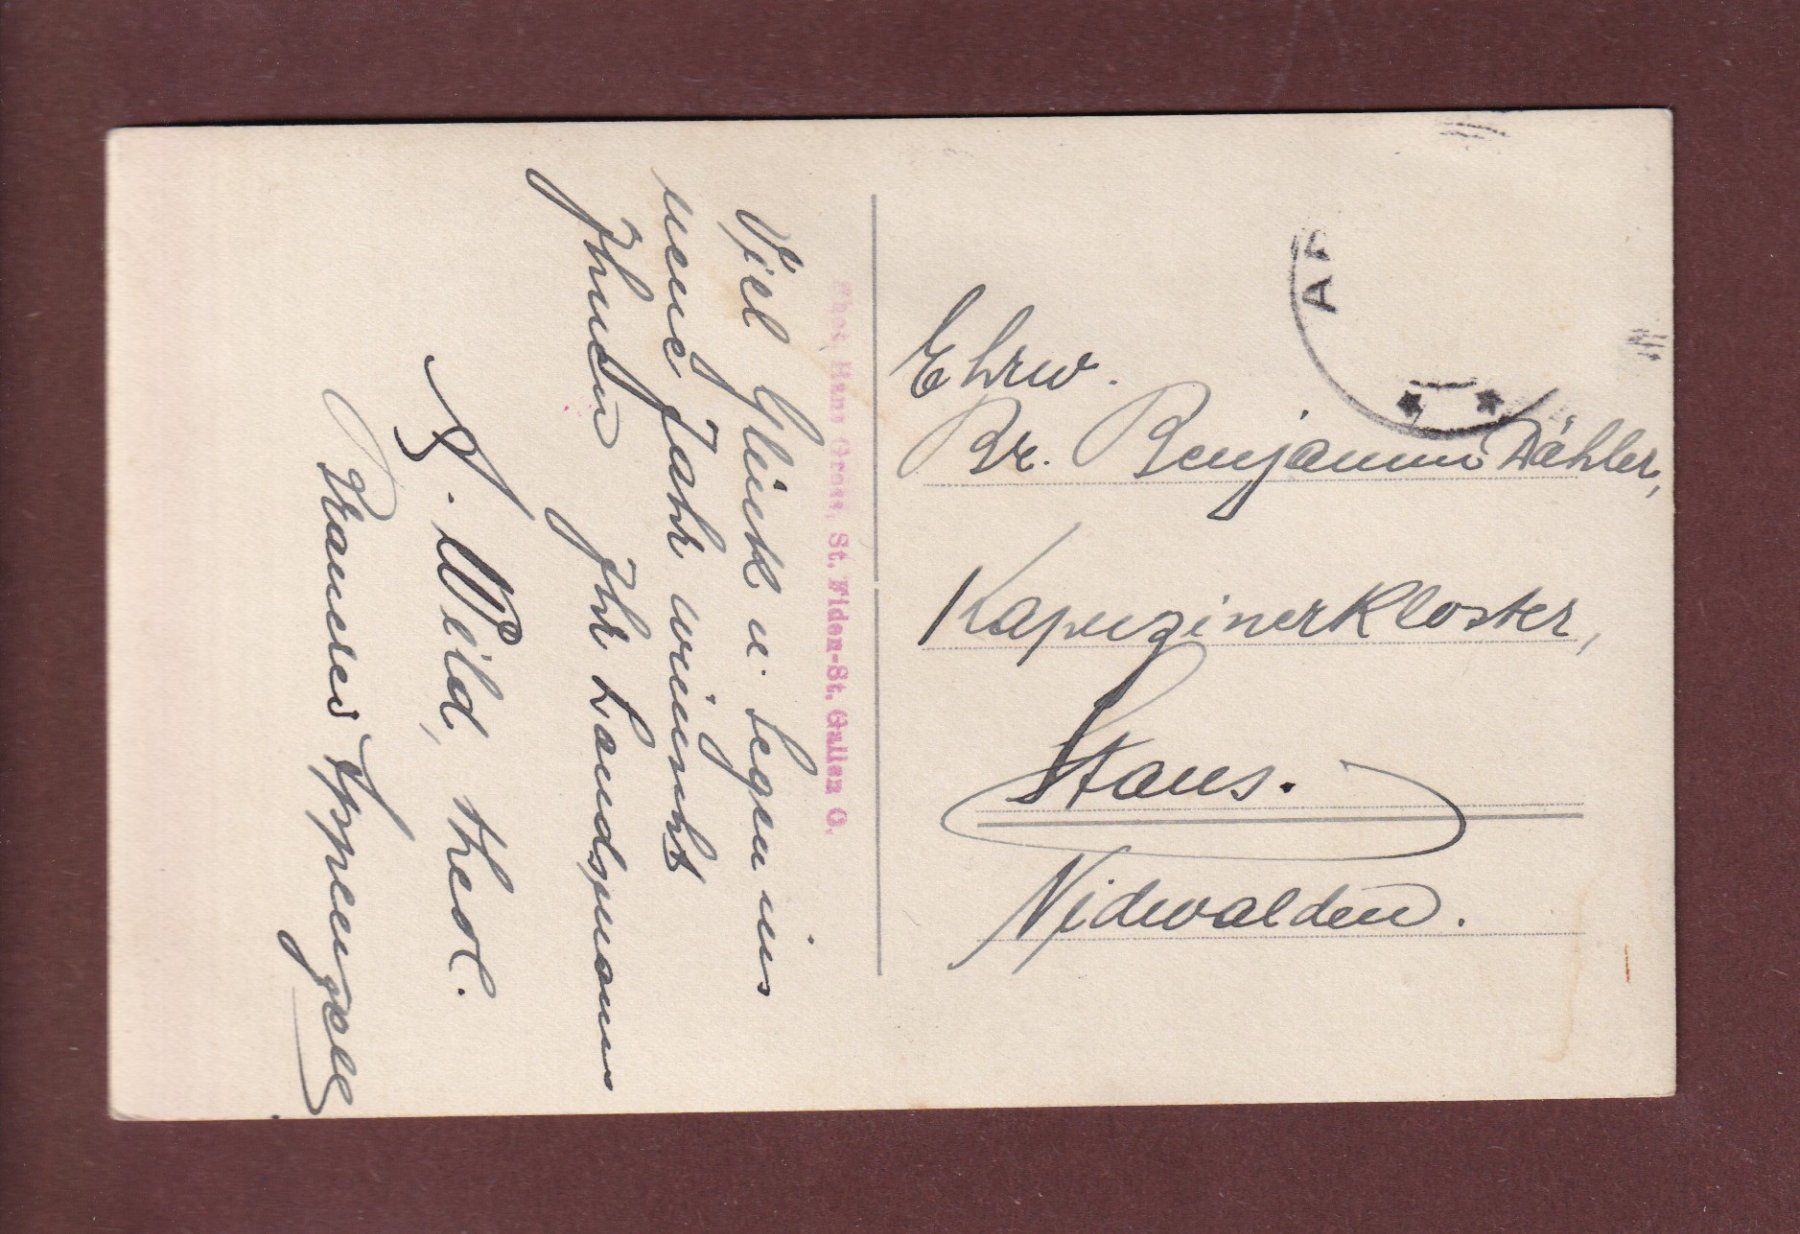 Viel Glück u. Segen ins
neue Jahr wünscht
Ihnen Ihr Landsmann
A. Wild, theol.
Appenzell
Phot. Hans Gross, St. Fiden-St. Gallen O.
AP
Ehrw.
Br. Benjamin Dähler,
Kapuzinerkloster,
Stans.
Nidwalden.